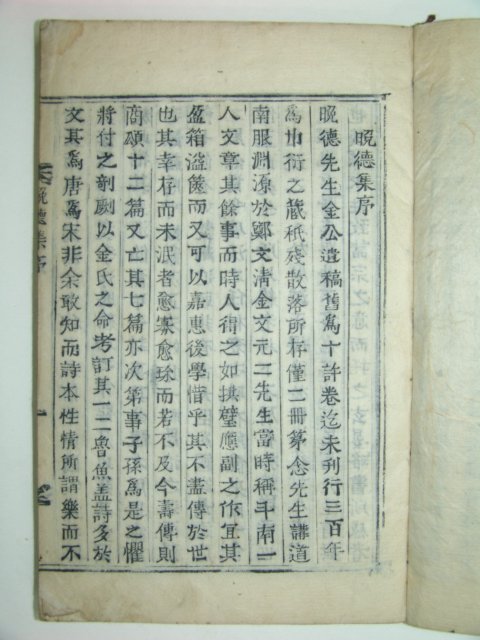 晩德集序
晩德先生金公遺稿舊爲十許卷迄未刊行三百年
爲巾衍之蔵秖殘散落所存僅二冊第念先生講道
南服淵源於鄭文清金文元二先生當時稱斗南一
人文章其餘事而時人得之如拱璧應副之作宜其
盈箱溢篋而又可以嘉惠後學惜乎其不盡傳於世
也其幸存而未泯者愈寡愈珎而若不及今壽傳則
商頌十二篇又亡其七篇亦次第事子孫爲是之懼
將付之剞劂以金氏之命考訂其一二魯魚盖詩多於
文其爲唐爲宋非余敢知而詩本性情所謂樂而不
晩德集序
一